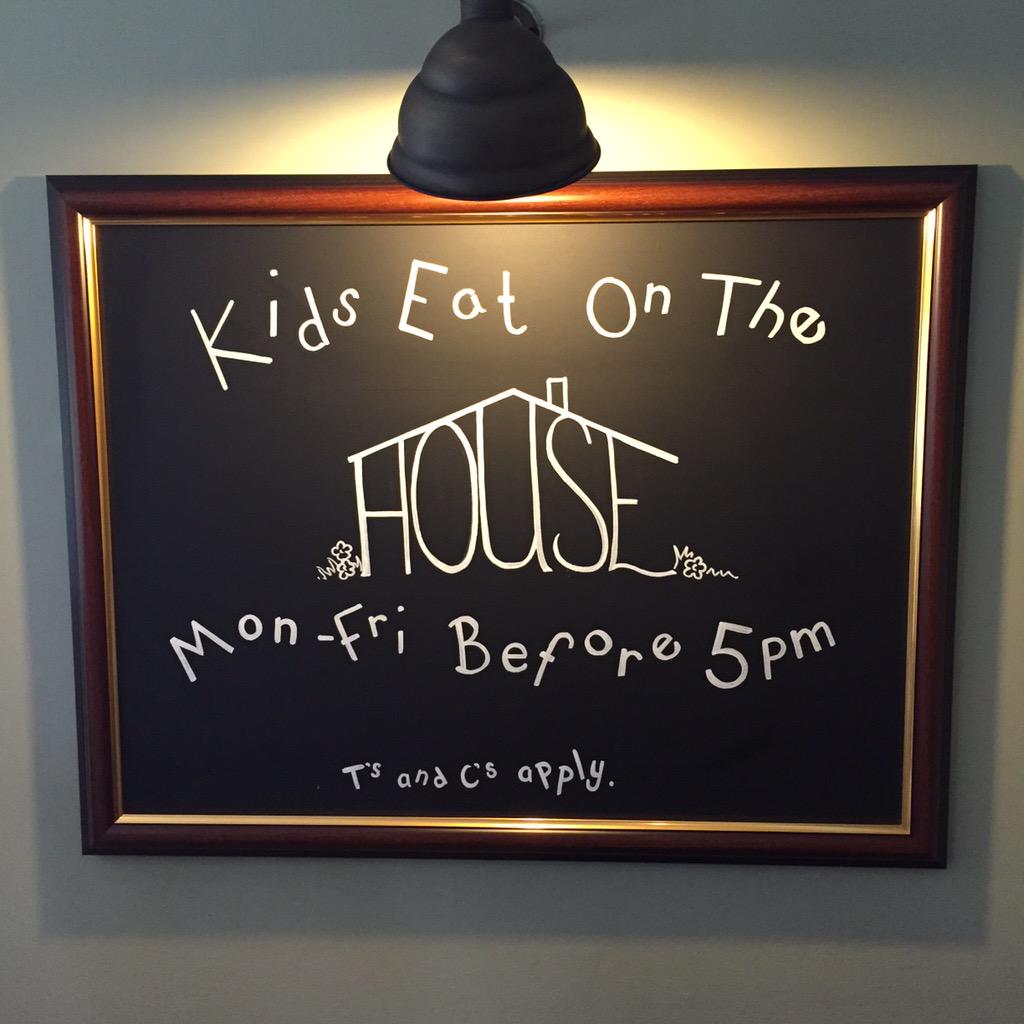 Kids Eat On The
HOUSE
Mon-Fri Before 5pm
T's and C's apply.